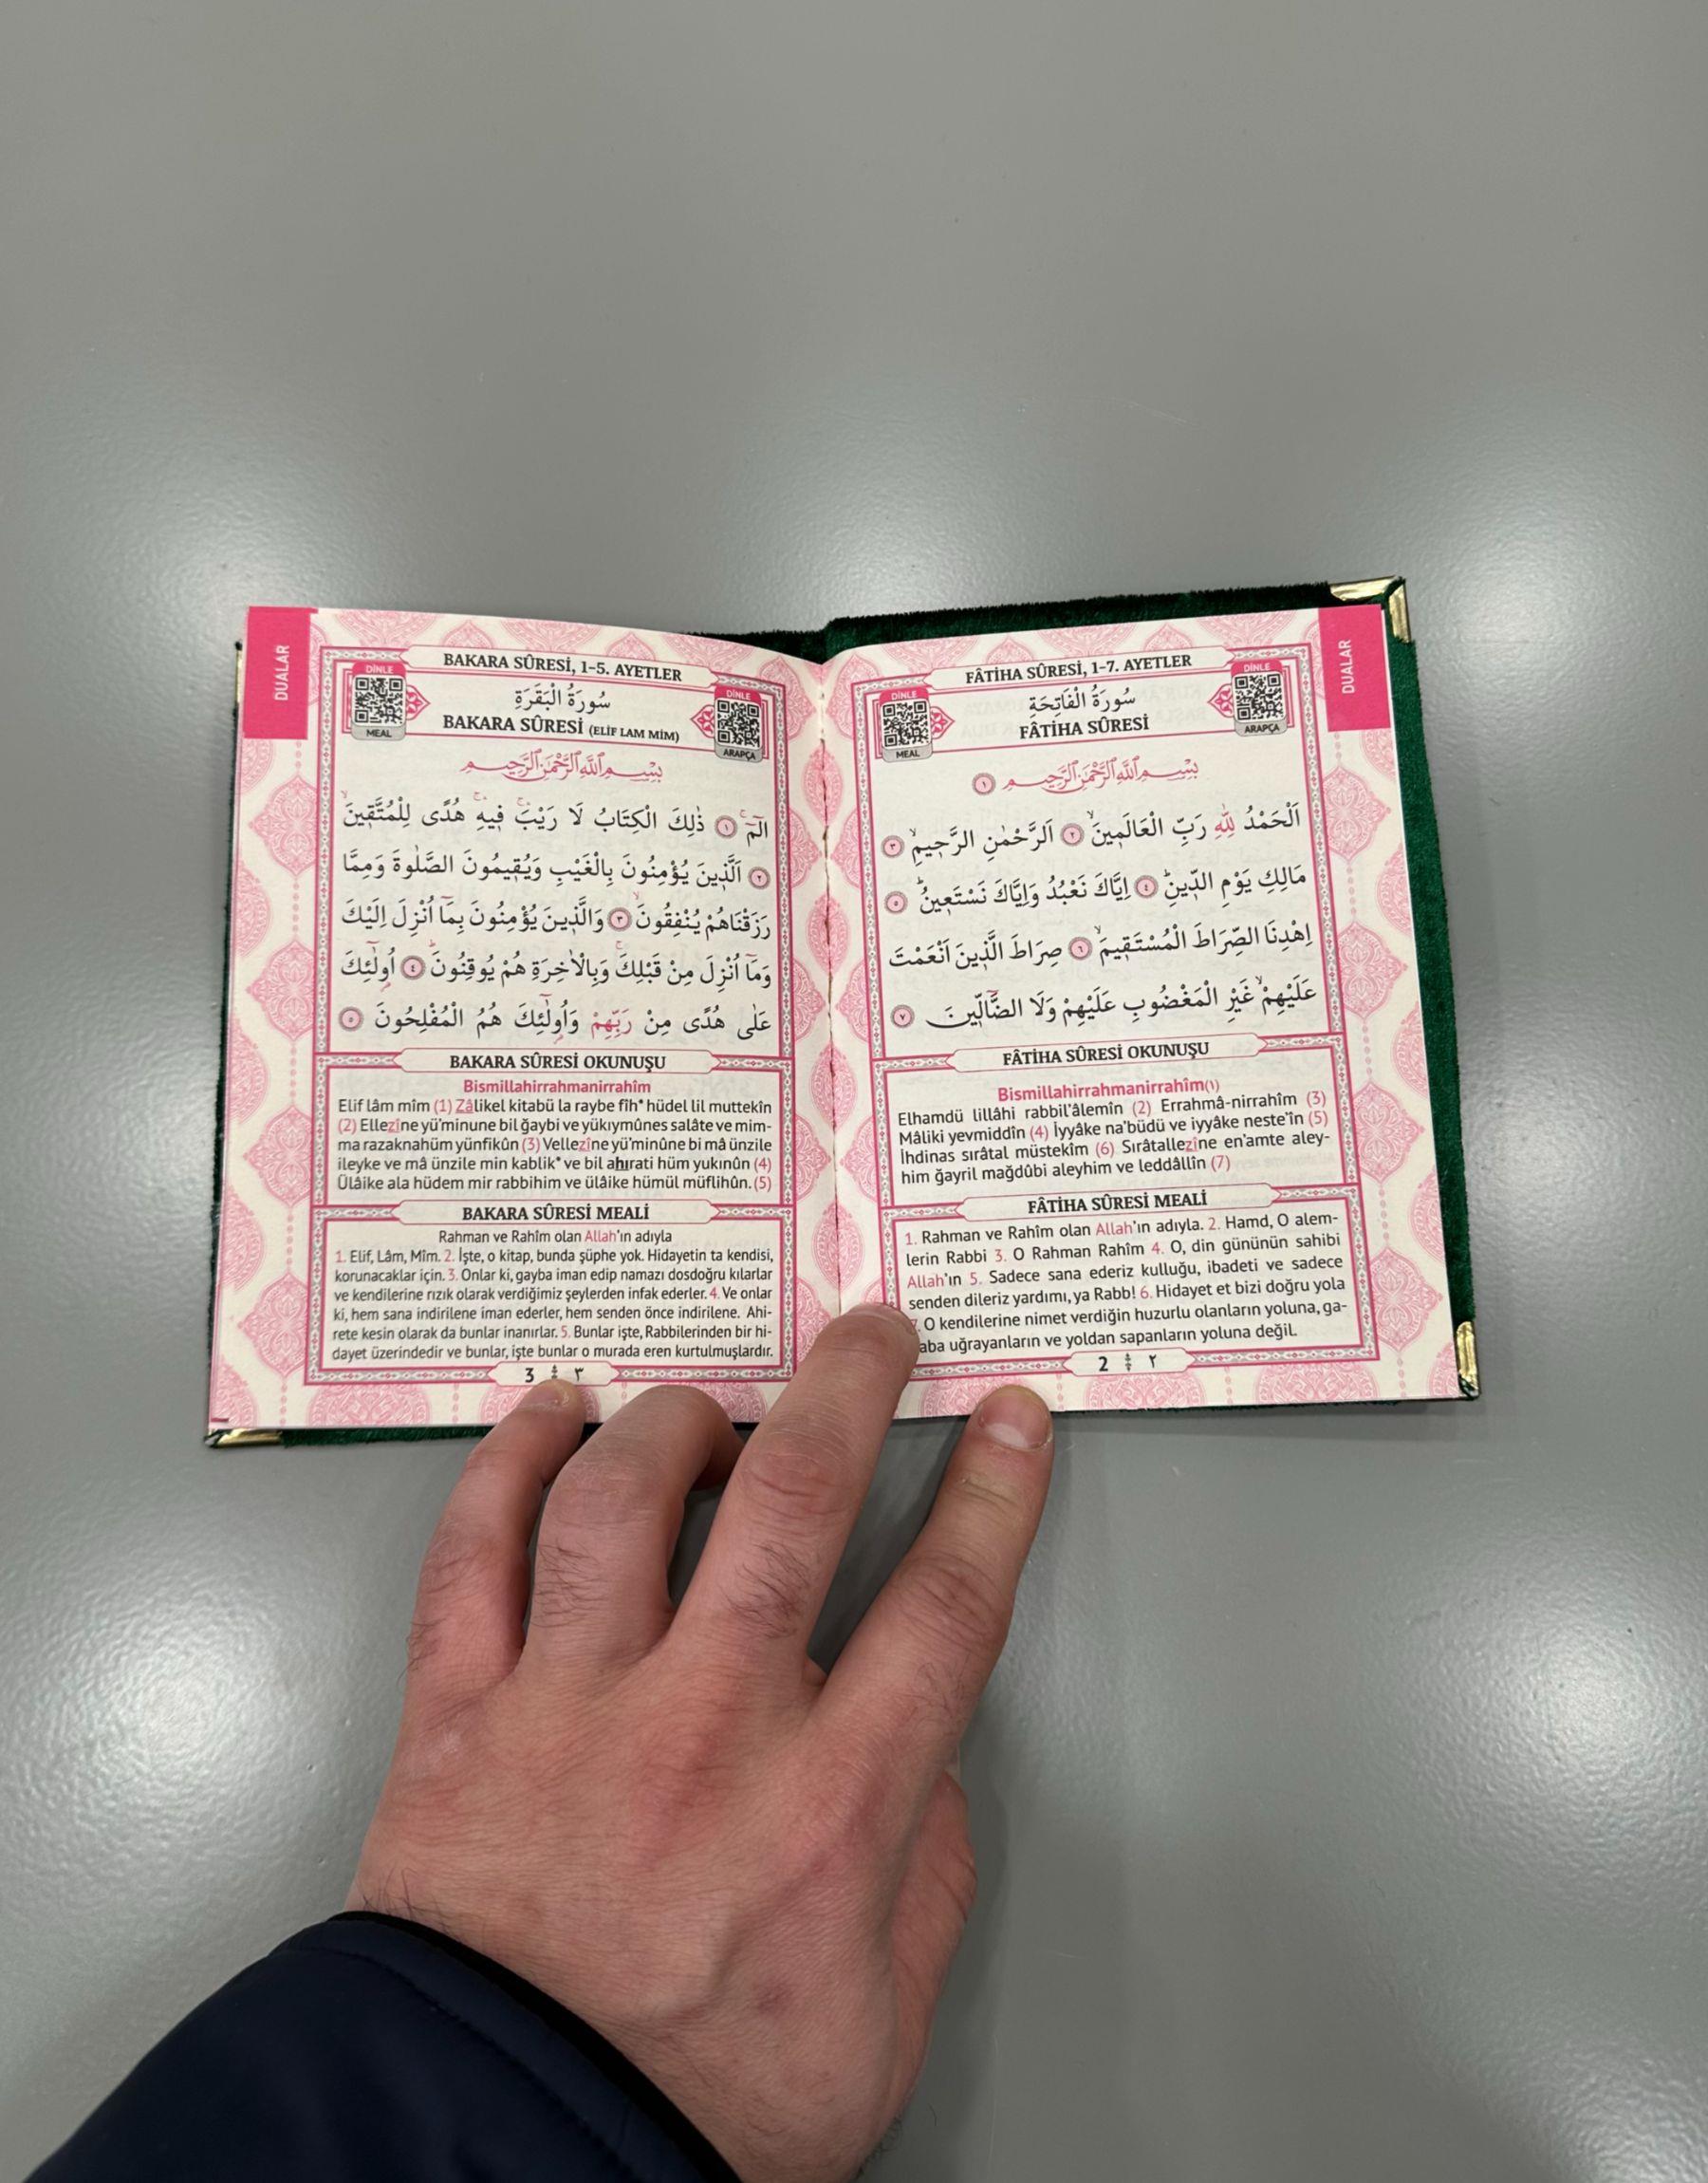 DUALAR
FÂTİHA SÛRESİ, 1-7. AYETLER
DİNLE
MEAL
سُورَةُ الْفَاتِحَةِ
FÂTİHA SÛRESİ
DİNLE
ARAPÇA
بِسْمِ اللّٰهِ الرَّحْمٰنِ الرَّحِيمِ ١
اَلْحَمْدُ لِلّٰهِ رَبِّ الْعَالَمٖينَۙ ٢ اَلرَّحْمٰنِ الرَّحٖيمِۙ ٣
مَالِكِ يَوْمِ الدّٖينِؕ ٤ اِيَّاكَ نَعْبُدُ وَاِيَّاكَ نَسْتَعٖينُؕ ٥
اِهْدِنَا الصِّرَاطَ الْمُسْتَقٖيمَۙ ٦ صِرَاطَ الَّذٖينَ اَنْعَمْتَ
عَلَيْهِمْۙ غَيْرِ الْمَغْضُوبِ عَلَيْهِمْ وَلَا الضَّٓالّٖينَ ٧
FÂTİHA SÛRESİ OKUNUŞU
Bismillahirrahmanirrahîm(1)
Elhamdü lillâhi rabbil'âlemîn (2) Errahmâ-nirrahîm (3)
Mâliki yevmiddîn (4) İyyâke na'büdü ve iyyâke neste'în (5)
İhdinas sırâtal müstekîm (6) Sırâtallezîne en'amte aley-
him ğayril mağdûbi aleyhim ve leddâllîn (7)
FÂTİHA SÛRESİ MEALİ
1. Rahman ve Rahîm olan Allah'ın adıyla. 2. Hamd, O alem-
lerin Rabbi 3. O Rahman Rahîm 4. O, din gününün sahibi
Allah'ın 5. Sadece sana ederiz kulluğu, ibadeti ve sadece
senden dileriz yardımı, ya Rabb! 6. Hidayet et bizi doğru yola
7. O kendilerine nimet verdiğin huzurlu olanların yoluna, ga-
aba uğrayanların ve yoldan sapanların yoluna değil.
2 ٢
DUALAR
BAKARA SÛRESİ, 1-5. AYETLER
DİNLE
MEAL
سُورَةُ الْبَقَرَةِ
BAKARA SÛRESİ (ELİF LAM MİM)
DİNLE
ARAPÇA
بِسْمِ اللّٰهِ الرَّحْمٰنِ الرَّحِيمِ
الٓمٓۚ ١ ذٰلِكَ الْكِتَابُ لَا رَيْبَۚ فٖيهِۚ هُدًى لِلْمُتَّقٖينَۙ
٢ اَلَّذٖينَ يُؤْمِنُونَ بِالْغَيْبِ وَيُقٖيمُونَ الصَّلٰوةَ وَمِمَّا
رَزَقْنَاهُمْ يُنْفِقُونَۙ ٣ وَالَّذٖينَ يُؤْمِنُونَ بِمَٓا اُنْزِلَ اِلَيْكَ
وَمَٓا اُنْزِلَ مِنْ قَبْلِكَۚ وَبِالْاٰخِرَةِ هُمْ يُوقِنُونَؕ ٤ اُو۬لٰٓئِكَ
عَلٰى هُدًى مِنْ رَبِّهِمْ وَاُو۬لٰٓئِكَ هُمُ الْمُفْلِحُونَ ٥
BAKARA SÛRESİ OKUNUŞU
Bismillahirrahmanirrahîm
Elif lâm mîm (1) Zâlikel kitabü la raybe fîh* hüdel lil muttekîn
(2) Ellezîne yü'minune bil ğaybi ve yükıymûnes salâte ve mim-
ma razaknahüm yünfikûn (3) Vellezîne yü'minûne bi mâ ünzile
ileyke ve mâ ünzile min kablik* ve bil ahırati hüm yukınûn (4)
Ülâike ala hüdem mir rabbihim ve ülâike hümül müflihûn. (5)
BAKARA SÛRESİ MEALİ
Rahman ve Rahîm olan Allah'ın adıyla
1. Elif, Lâm, Mîm. 2. İşte, o kitap, bunda şüphe yok. Hidayetin ta kendisi,
korunacaklar için. 3. Onlar ki, gayba iman edip namazı dosdoğru kılarlar
ve kendilerine rızık olarak verdiğimiz şeylerden infak ederler. 4. Ve onlar
ki, hem sana indirilene iman ederler, hem senden önce indirilene. Ahi-
rete kesin olarak da bunlar inanırlar. 5. Bunlar işte, Rabbilerinden bir hi-
dayet üzerindedir ve bunlar, işte bunlar o murada eren kurtulmuşlardır.
3 ٣